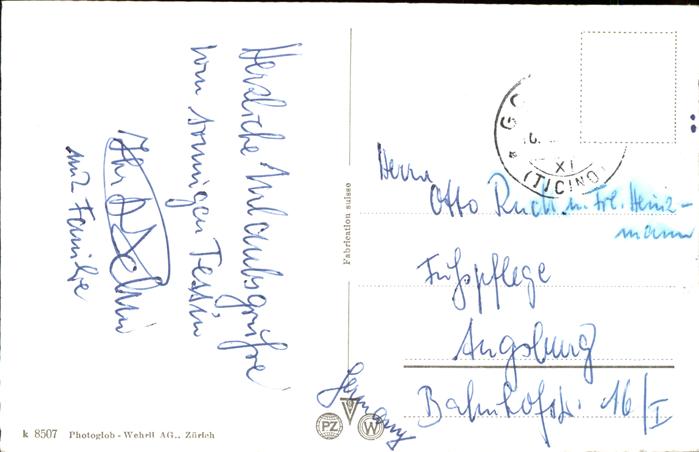 Herzliche Urlaubsgrüße
vom sonnigen Tessin
Ihr
mit Familie
Fabrication suisse
XI
(TICINO)
Herrn
Otto Ruch u. Frl. Heinz-
mann
Fußpflege
Augsburg
Bahnhofstr. 16/I
Germany
PZ W
k 8507 Photoglob - Wehrli AG., Zürich